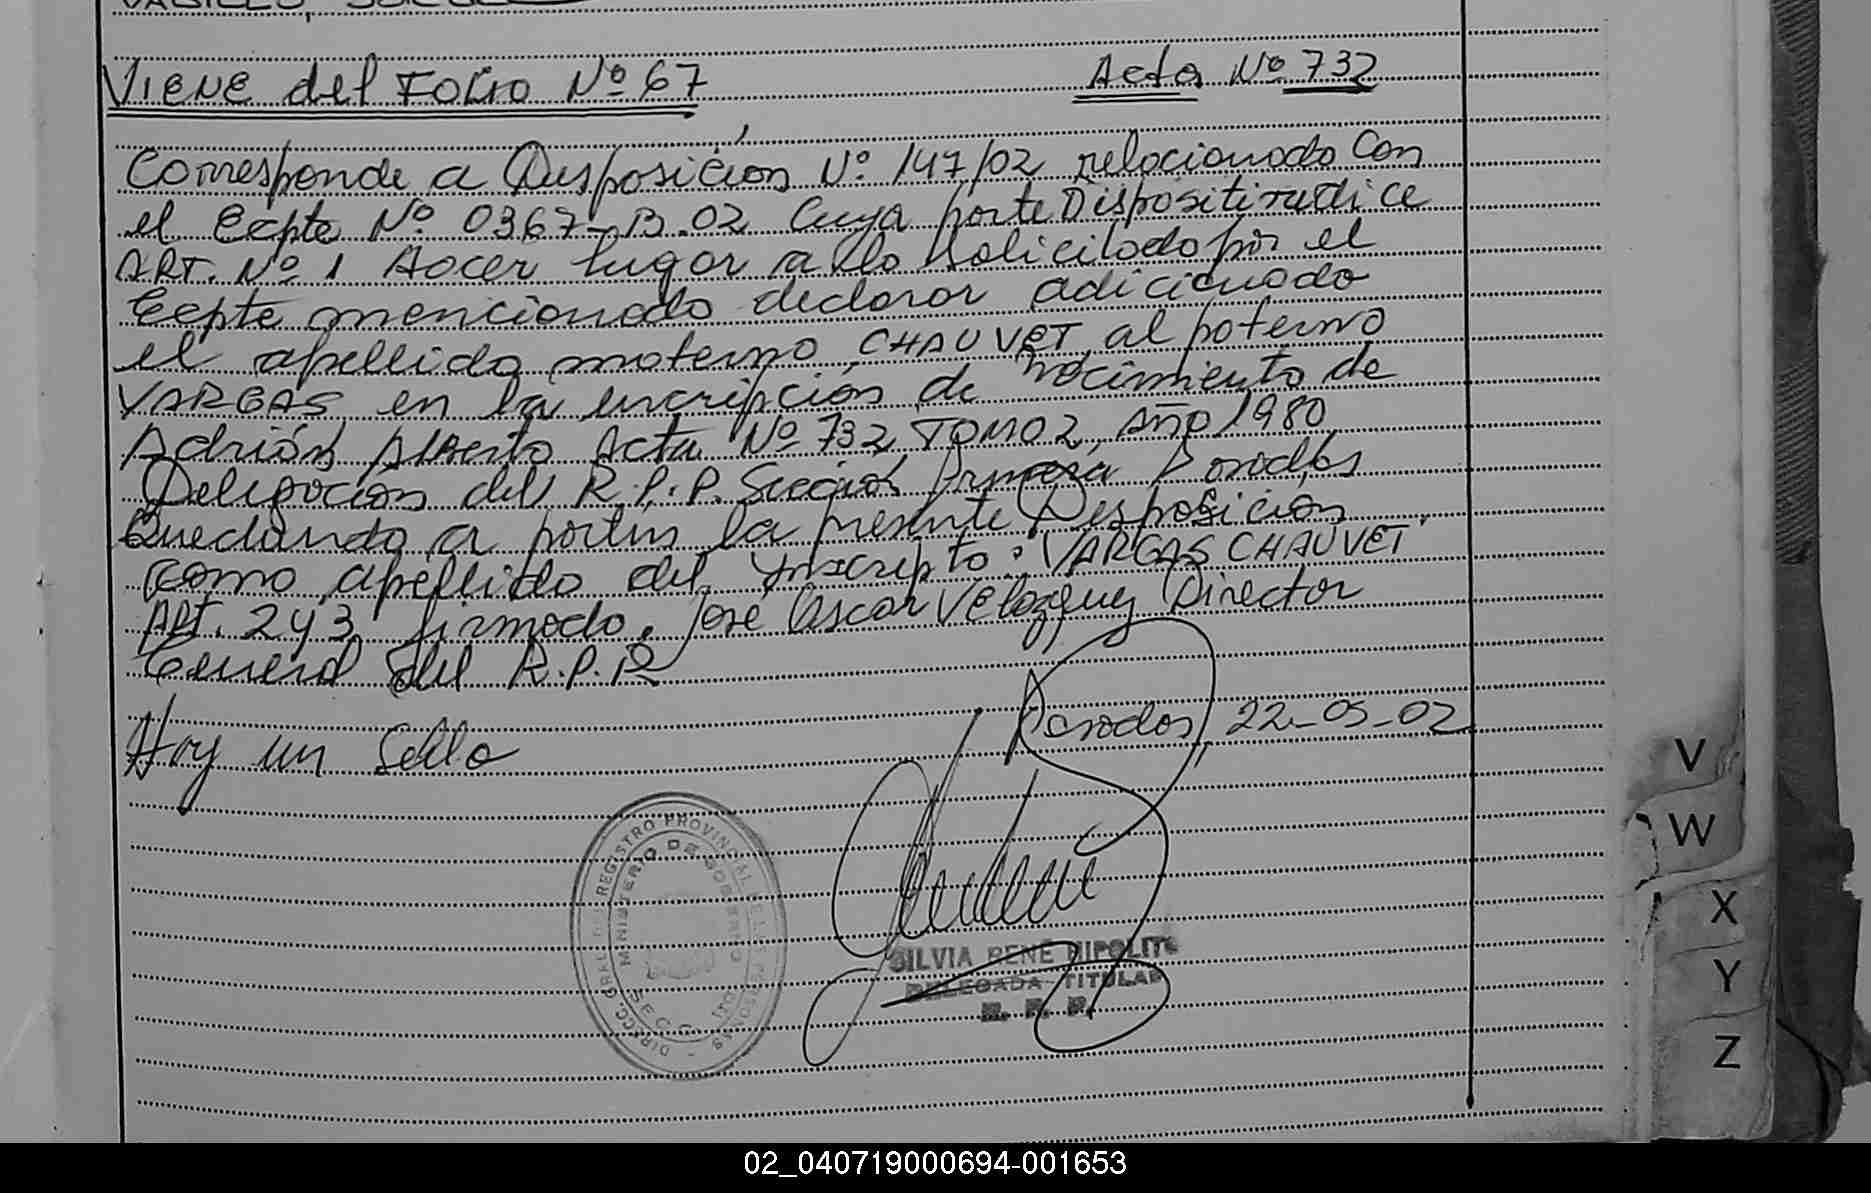 VIENE del FOLIO Nº 67
Acta Nº 732
Corresponde a Disposición Nº 147/02 relacionado Con
el Ecpte Nº 0367-B.02 Cuya parte Dispositiva dice
ART. Nº 1 Hacer lugar a lo solicitado por el
Ecpte mencionado declarar adicionado
el apellido materno CHAUVET al paterno
VARGAS en la incripción de nacimiento de
Adrián Alberto Acta Nº 732 TOMO 2 Año 1980
Delegación del R.P.P. Sección Primera
Quedando a partir la presente Disposición
como apellido del Inscripto: VARGAS CHAUVET
Art. 2 y 3 firmado. José Oscar Velazquez Director
General del R.P.P
Hay un Sello
22-05-02
DIRECC. GRAL. DEL REGISTRO PROVINCIAL DE LAS PERSONAS
MINISTERIO DE GOBIERNO
SILVIA RENÉ HIPOLITO
DELEGADA TITULAR
R. P. P.
V
W
X
Y
Z
02_040719000694-001653